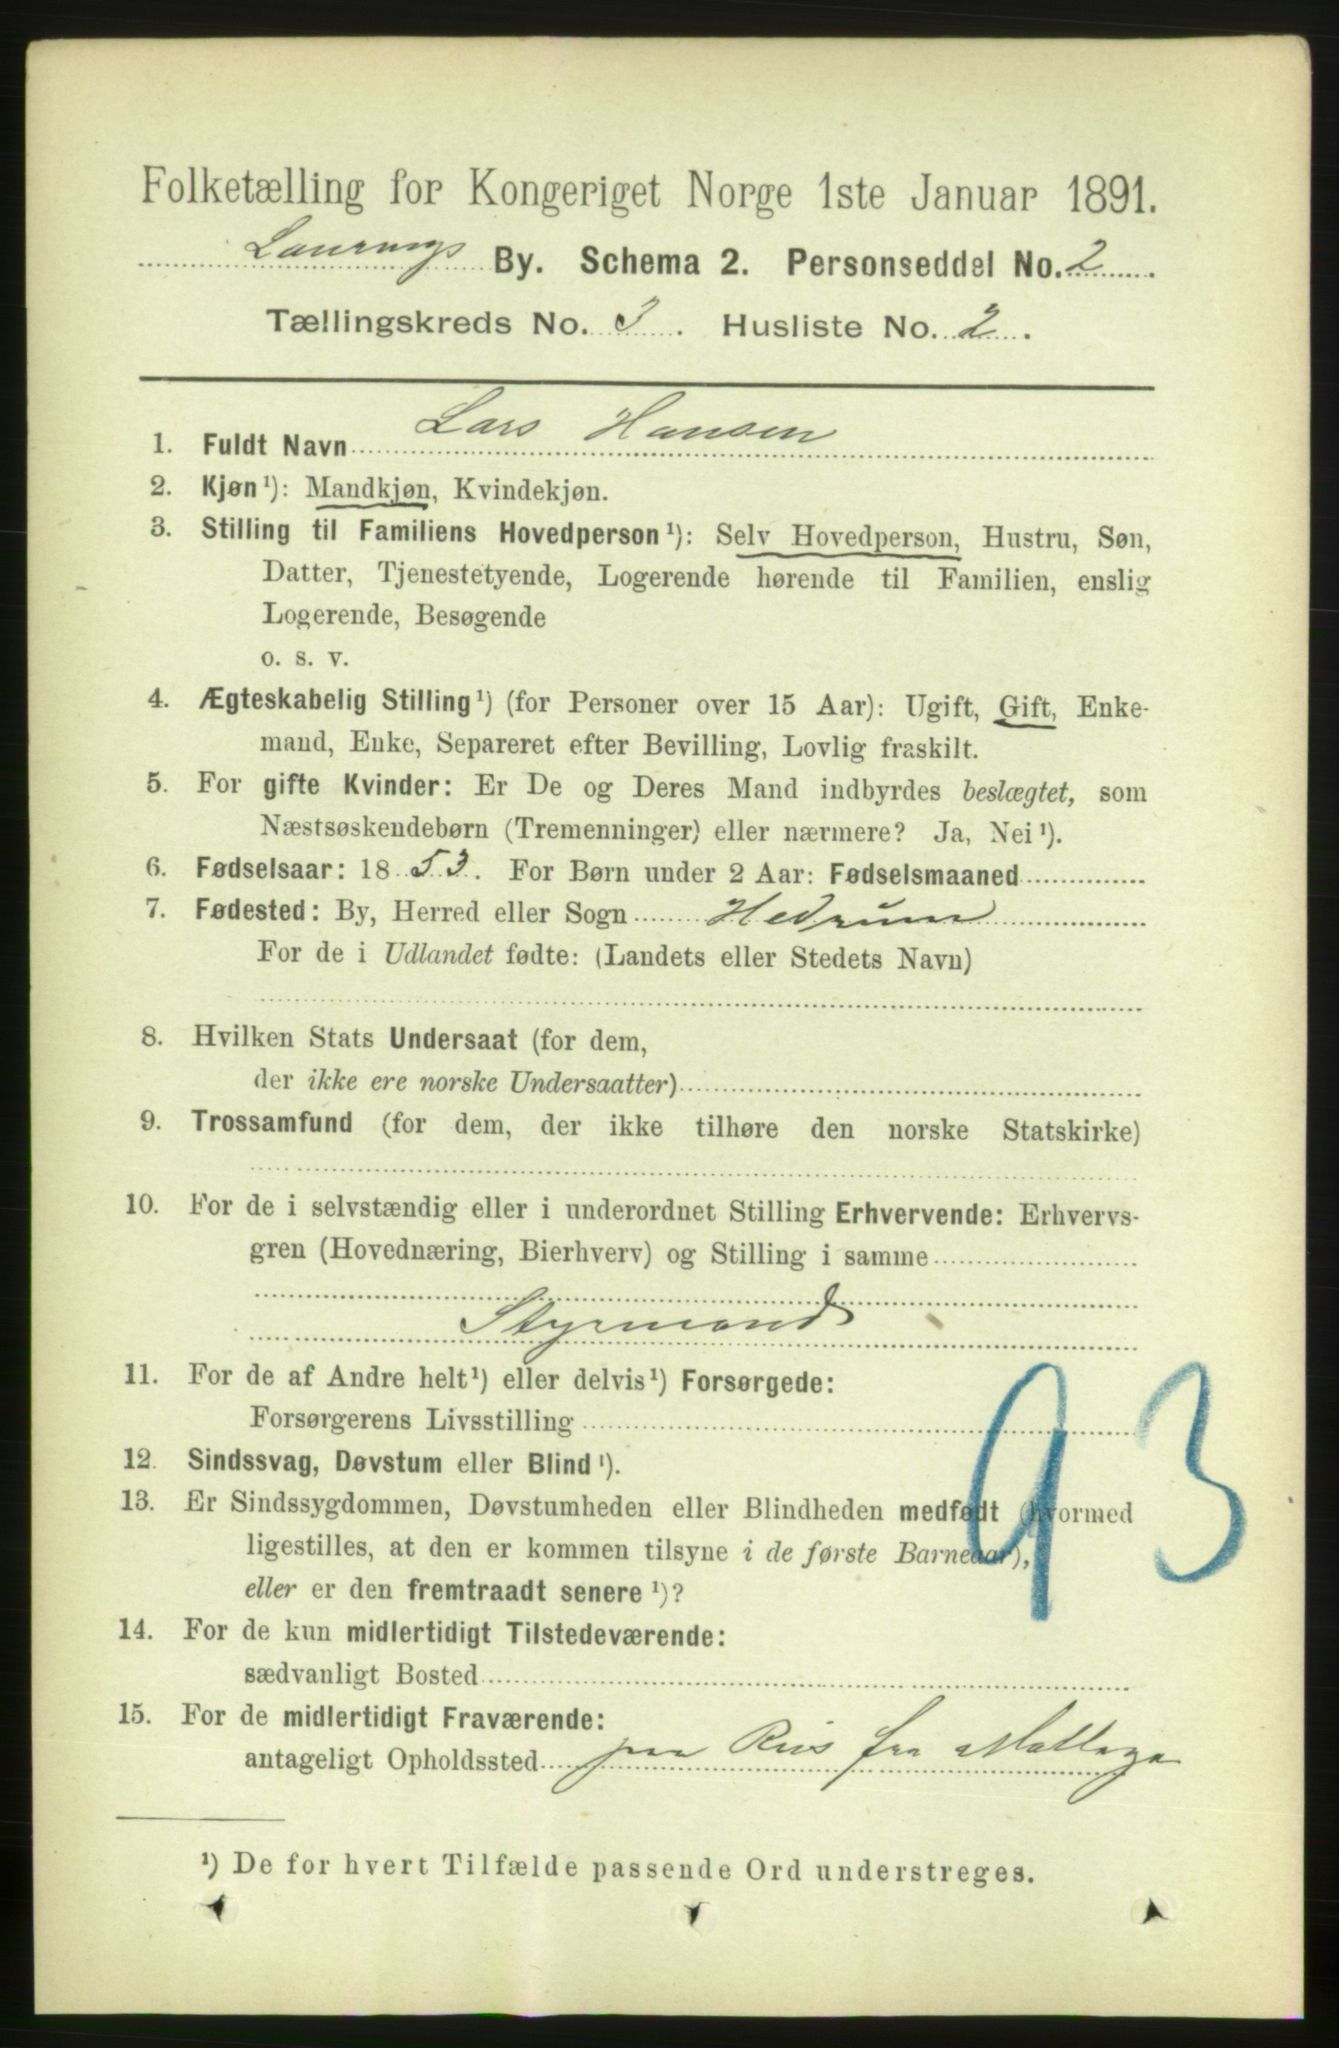 Folketælling for Kongeriget Norge 1ste Januar 1891.
Laurvigs By. Schema 2. Personseddel No. 2.
Tællingskreds No. 3. Husliste No. 2.
1. Fuldt Navn Lars Hansen
2. Kjøn¹): Mandkjøn, Kvindekjøn.
3. Stilling til Familiens Hovedperson¹): Selv Hovedperson, Hustru, Søn,
Datter, Tjenestetyende, Logerende hørende til Familien, enslig
Logerende, Besøgende
o. s. v.
4. Ægteskabelig Stilling¹) (for Personer over 15 Aar): Ugift, Gift, Enke-
mand, Enke, Separeret efter Bevilling, Lovlig fraskilt.
5. For gifte Kvinder: Er De og Deres Mand indbyrdes beslægtet, som
Næstsøskendebørn (Tremenninger) eller nærmere? Ja, Nei¹).
6. Fødselsaar: 1853. For Børn under 2 Aar: Fødselsmaaned
7. Fødested: By, Herred eller Sogn Hedrum
For de i Udlandet fødte: (Landets eller Stedets Navn)
8. Hvilken Stats Undersaat (for dem,
der ikke ere norske Undersaatter)
9. Trossamfund (for dem, der ikke tilhøre den norske Statskirke)
10. For de i selvstændig eller i underordnet Stilling Erhvervende: Erhvervs-
gren (Hovednæring, Bierhverv) og Stilling i samme
Styrmand
11. For de af Andre helt¹) eller delvis¹) Forsørgede:
Forsørgerens Livsstilling
12. Sindssvag, Døvstum eller Blind¹).
13. Er Sindssygdommen, Døvstumheden eller Blindheden medfødt (hvormed
ligestilles, at den er kommen tilsyne i de første Barneaar),
eller er den fremtraadt senere¹)?
93
14. For de kun midlertidigt Tilstedeværende:
sædvanligt Bosted
15. For de midlertidigt Fraværende:
antageligt Opholdssted paa Reis fra
¹) De for hvert Tilfælde passende Ord understreges.